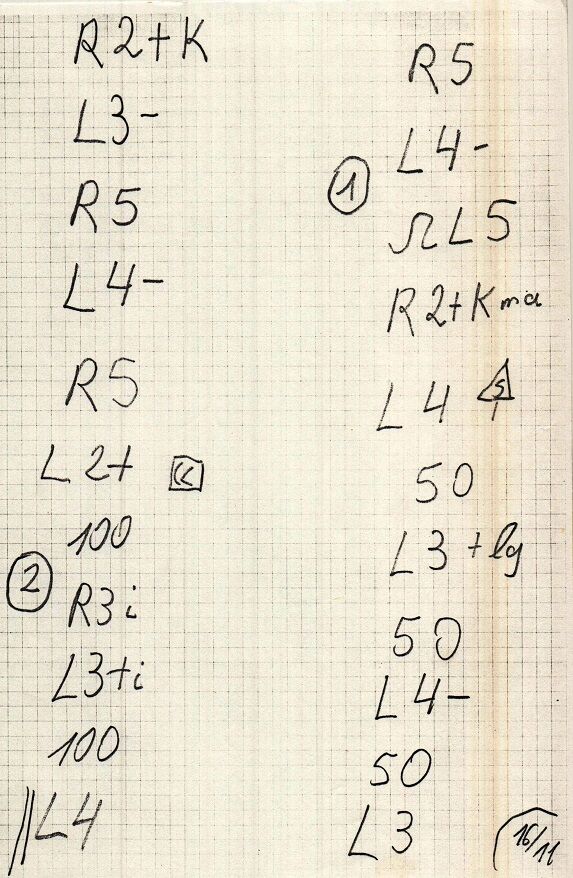 R2+K
L3-
R5
L4-
R5
L2+ K
100
2
R3i
L3+i
100
L4
R5
L4-
1
ΩL5
R2+Kma
L4 5
50
L3+lg
50
L4-
50
L3
16/11